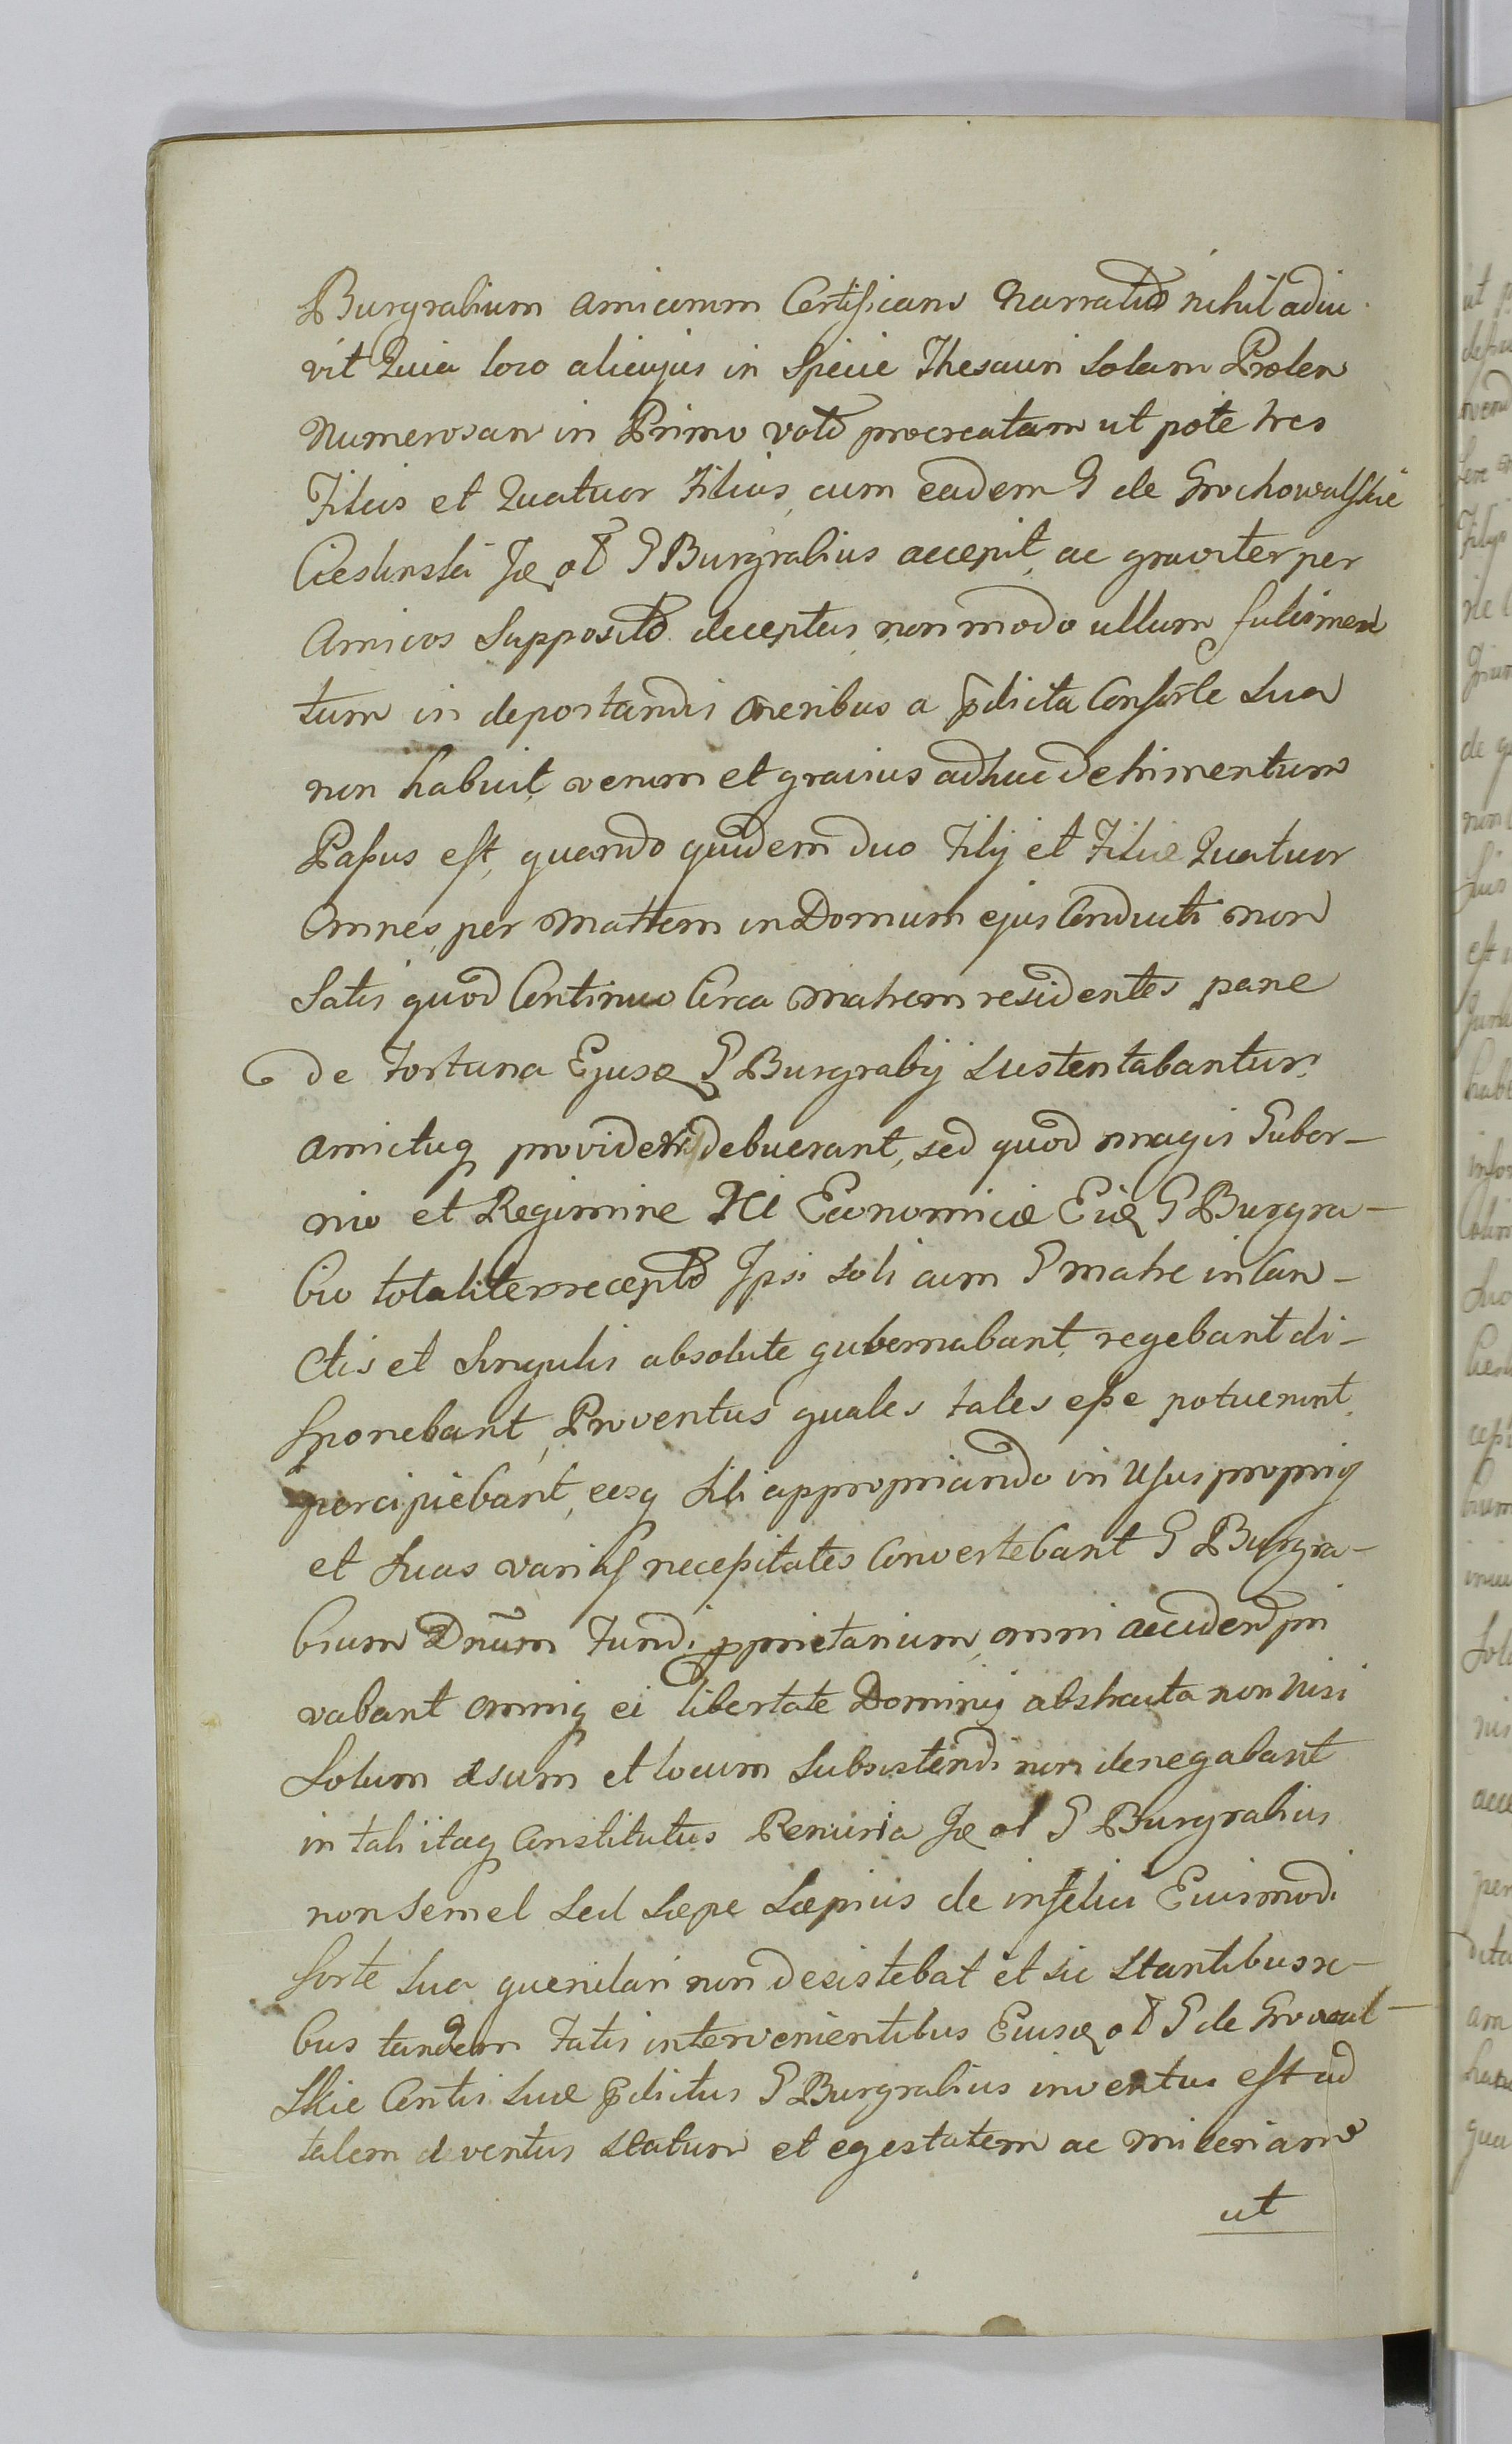 Burgrabium amicorum Certificans narratio nihil adiu
vit Quia loco alicujus in Specie Thesauri Solam Prolem
Numerosam in Primo voto procreatam ut pote tres
Filios et Quatuor Filias, cum eadem G de Grochowalskie
Cieslinska G Burgrabius accepit, ac graviter per
Amicos Supposito deceptus, non modo ullum fulcimen
tum in deportandis oneribus a pdicta Consorte Sua
non habuit, verum et gravius adhuc detrimentum
Passus est, quando quidem duo Filij et Filiæ Quatuor
Omnes, per Mattem in Domum ejus Conducti non
Satis quod Continuo Circa matrem residentes pane
de Fortuna G Burgrabij Sustentabantur,
amictuq provideri debuerant, sed quod magis Guber-
nio et Regimine Economiciæ G Burgra-
bio totaliter recepto Ipsi Soli cum G matre in Cun-
ctis et Singulis absolute gubernabant, regebant di-
sponebant, Proventus quales tales esse potuerunt
percipiebant, eosq Sibi appropriando in Usus proprios
et Suas varias necessitates Convertebant G Burgra-
bium Dnum Fundi pprietarium, omni pri
vabant omniq ei libertate Dominij abstracta non nisi
Solum esum et locum Subsistendi non denegabant
in tali itaq Constitutus Penuria G Burgrabius
non Semel Sed Sæpe Sæpius de infelici Eiusmodi
Sorte Sua querulari non desistebat et sic Stantibus re-
bus tandem Fatis intervenientibus G de Growal-
skie Contis Suæ pdictus G Burgrabius inventus est ad
talem deventus Statum et egestatem ac miseriam
ut